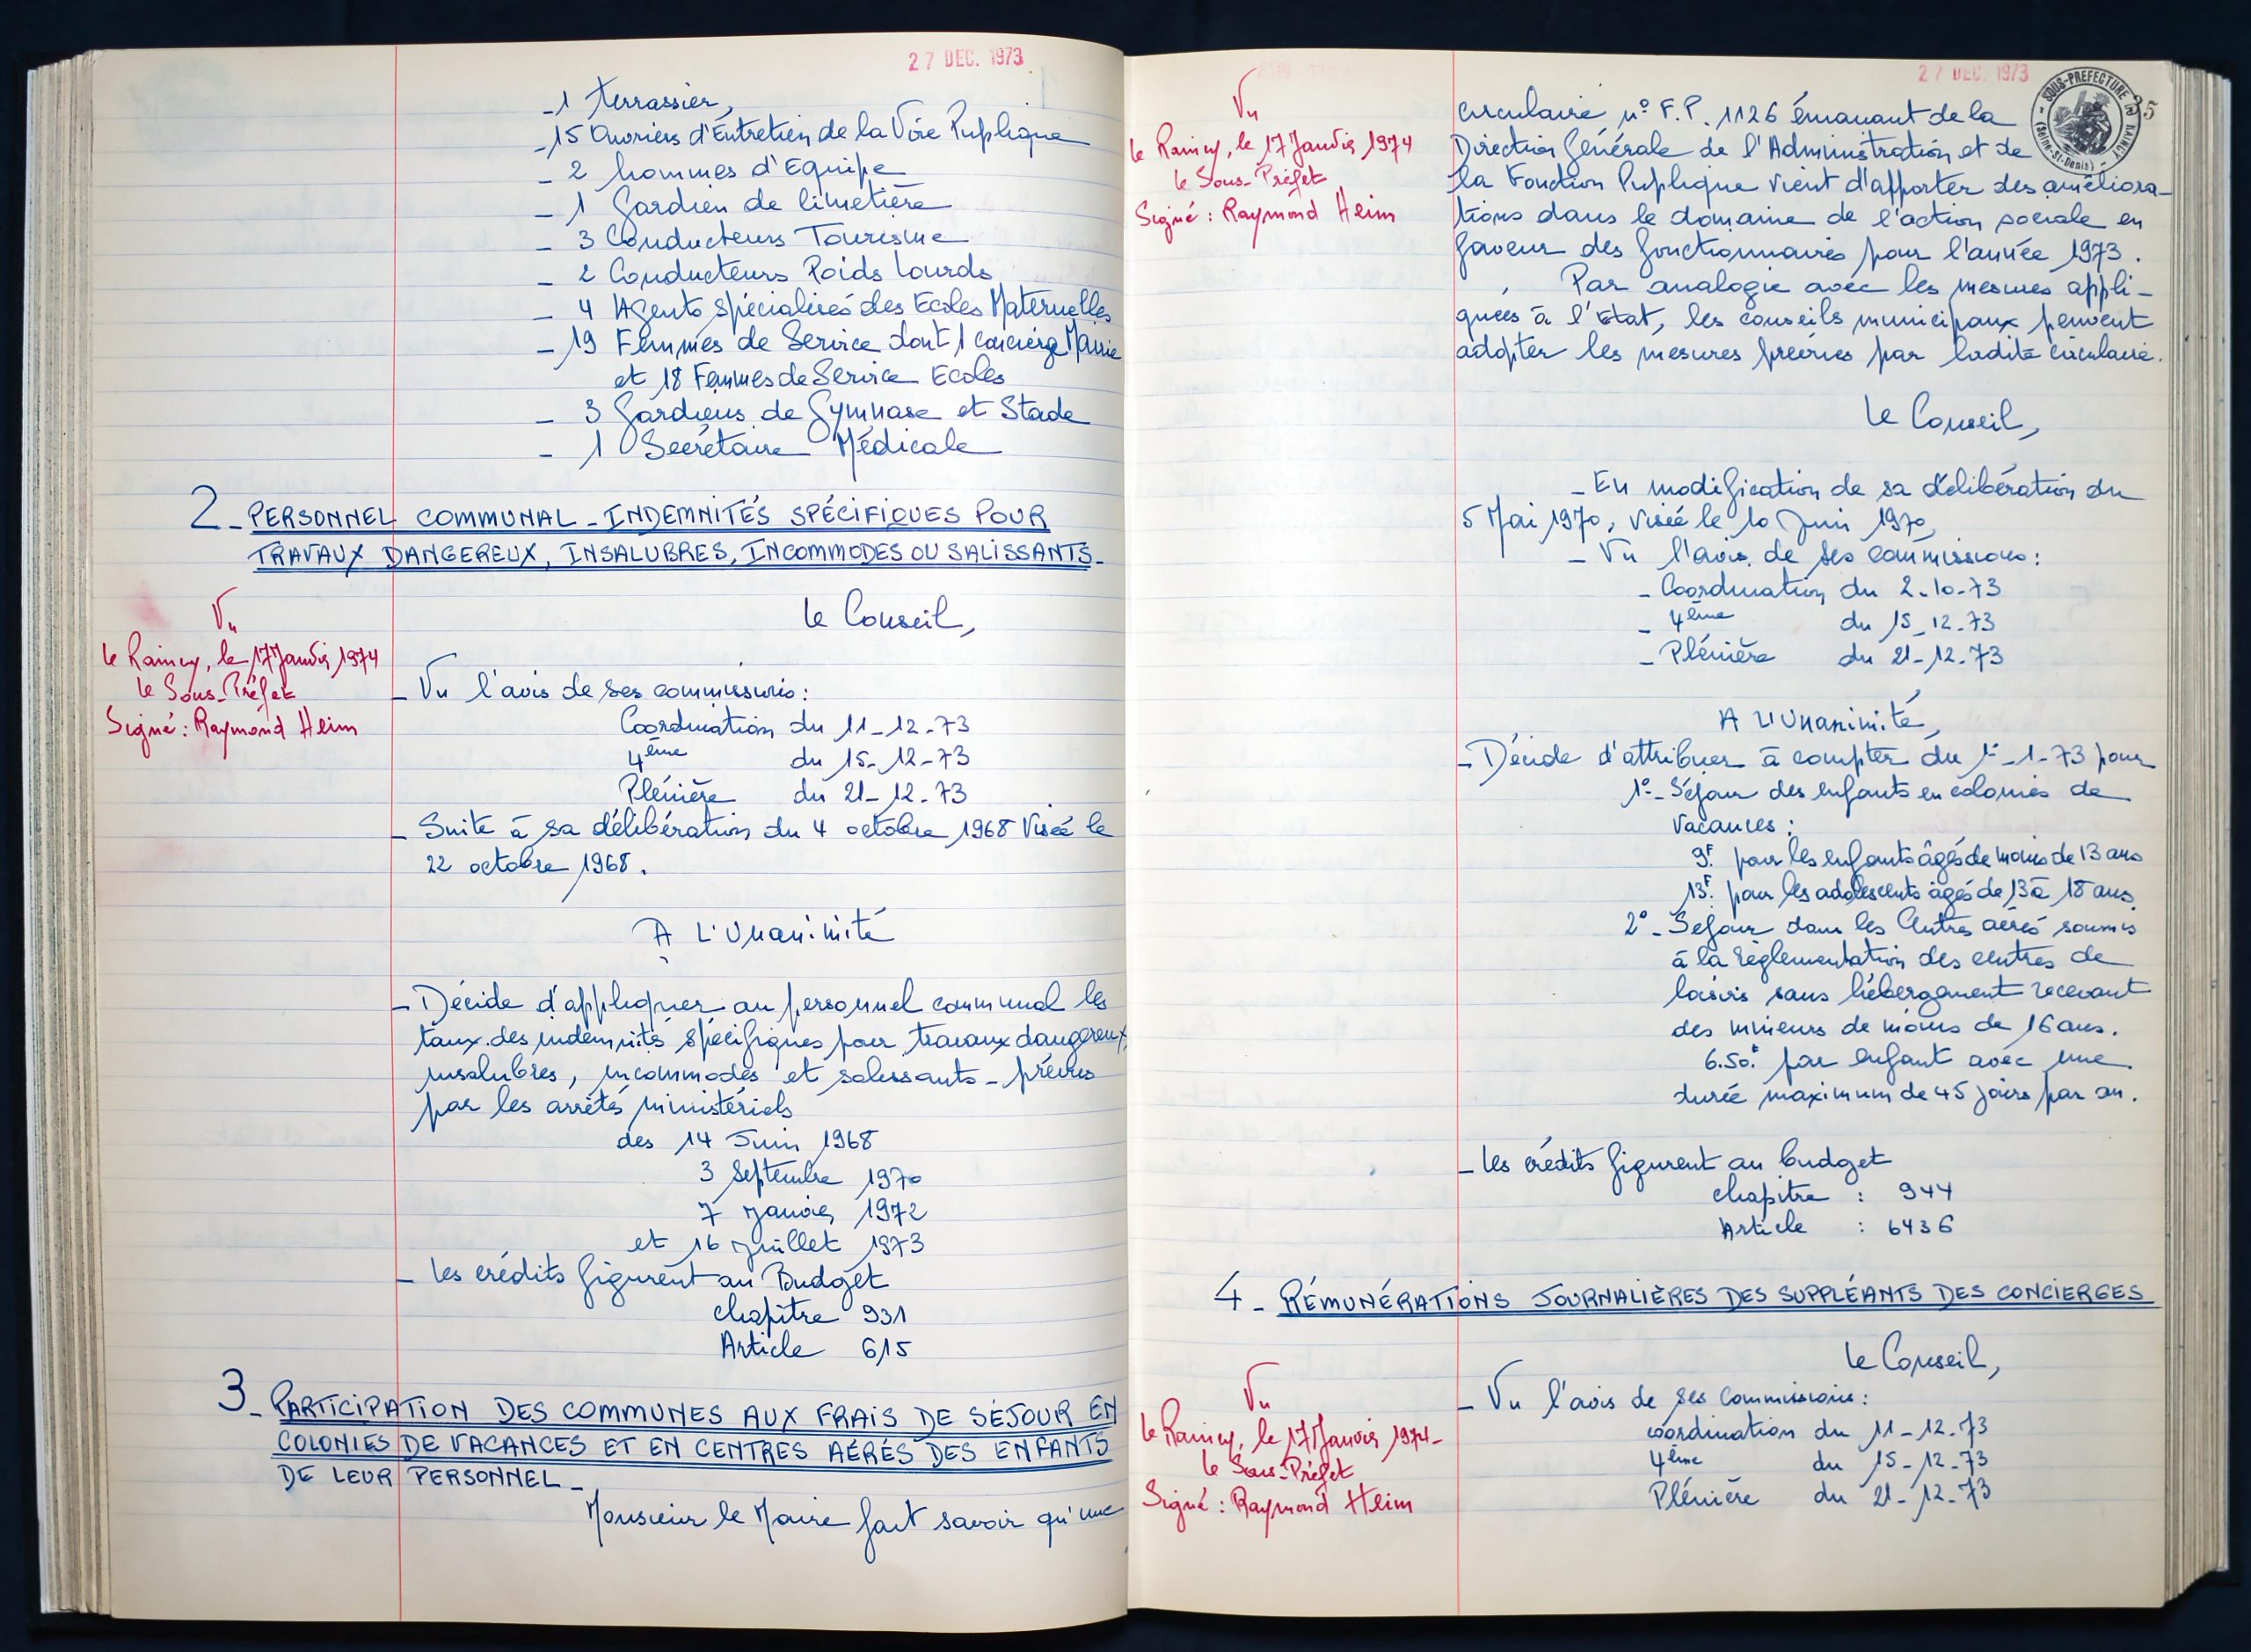 27 DEC. 1973
- 1 terrassier,
- 15 Ouvriers d'Entretien de la Voie Publique
- 2 hommes d'Equipe
- 1 Gardien de Cimetière
- 3 Conducteurs Tourisme
- 2 Conducteurs Poids Lourds
- 4 Agents spécialisés des Ecoles Maternelles
- 19 Femmes de Service dont 1 concierge Mairie
et 18 Femmes de Service Ecoles
- 3 Gardiens de Gymnase et Stade
- 1 Secrétaire Médicale
2 - PERSONNEL COMMUNAL - INDEMNITÉS SPÉCIFIQUES POUR
TRAVAUX DANGEREUX, INSALUBRES, INCOMMODES OU SALISSANTS -
Vu
le Raincy, le 17 Janvier 1974
le Sous-Préfet
Signé : Raymond Heim
Le Conseil,
- Vu l'avis de ses commissions :
Coordination du 11-12-73
4ème du 15-12-73
Plénière du 21-12-73
- Suite à sa délibération du 4 octobre 1968 Visée le
22 octobre 1968.
A L'Unanimité
- Décide d'appliquer au personnel communal les
taux des indemnités spécifiques pour travaux dangereux,
insalubres, incommodes et salissants - prévus
par les arrêtés ministériels
des 14 Juin 1968
3 Septembre 1970
7 Janvier 1972
et 16 Juillet 1973
- Les crédits figurent au Budget
Chapitre 931
Article 615
3 - PARTICIPATION DES COMMUNES AUX FRAIS DE SÉJOUR EN
COLONIES DE VACANCES ET EN CENTRES AÉRÉS DES ENFANTS
DE LEUR PERSONNEL -
Monsieur le Maire fait savoir qu'une
27 DEC. 1973
SOUS-PREFECTURE RAINCY
(Seine-St-Denis)
Vu
le Raincy, le 17 Janvier 1974
le Sous-Préfet
Signé : Raymond Heim
circulaire n° F.P. 1126 émanant de la
Direction Générale de l'Administration et de
la Fonction Publique vient d'apporter des améliora-
tions dans le domaine de l'action sociale en
faveur des fonctionnaires pour l'année 1973.
Par analogie avec les mesures appli-
quées à l'Etat, les conseils municipaux peuvent
adopter les mesures prévues par ladite circulaire.
Le Conseil,
- En modification de sa délibération du
5 Mai 1970, visée le 10 Juin 1970,
- Vu l'avis de ses commissions :
- Coordination du 2-10-73
- 4ème du 15-12-73
- Plénière du 21-12-73
A L'Unanimité,
- Décide d'attribuer à compter du 1er-1-73 pour
1° - Séjour des enfants en colonies de
vacances :
9F. pour les enfants âgés de moins de 13 ans
13F. pour les adolescents âgés de 13 à 18 ans
2° - Séjour dans les Centres aérés soumis
à la règlementation des centres de
loisirs sans hébergement recevant
des mineurs de moins de 16 ans.
6.50F par enfant avec une
durée maximum de 45 jours par an.
- Les crédits figurent au budget
Chapitre : 944
Article : 6436
4 - RÉMUNÉRATIONS JOURNALIÈRES DES SUPPLÉANTS DES CONCIERGES
Le Conseil,
Vu
le Raincy, le 17 Janvier 1974
le Sous-Préfet
Signé : Raymond Heim
- Vu l'avis de ses Commissions :
coordination du 11-12-73
4ème du 15-12-73
Plénière du 21-12-73